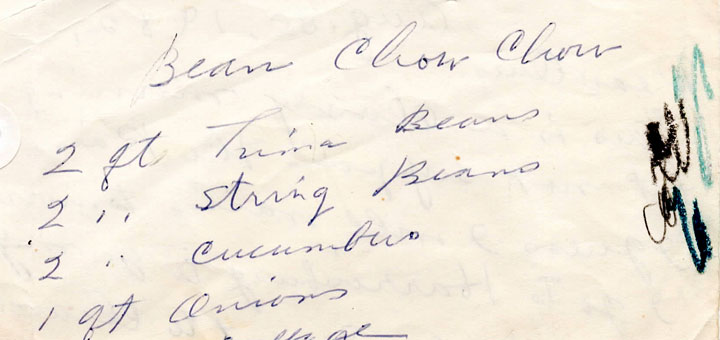 Bean Chow Chow
2 qt Lima Beans
2 " String Beans
2 " Cucumbers
1 qt Onions